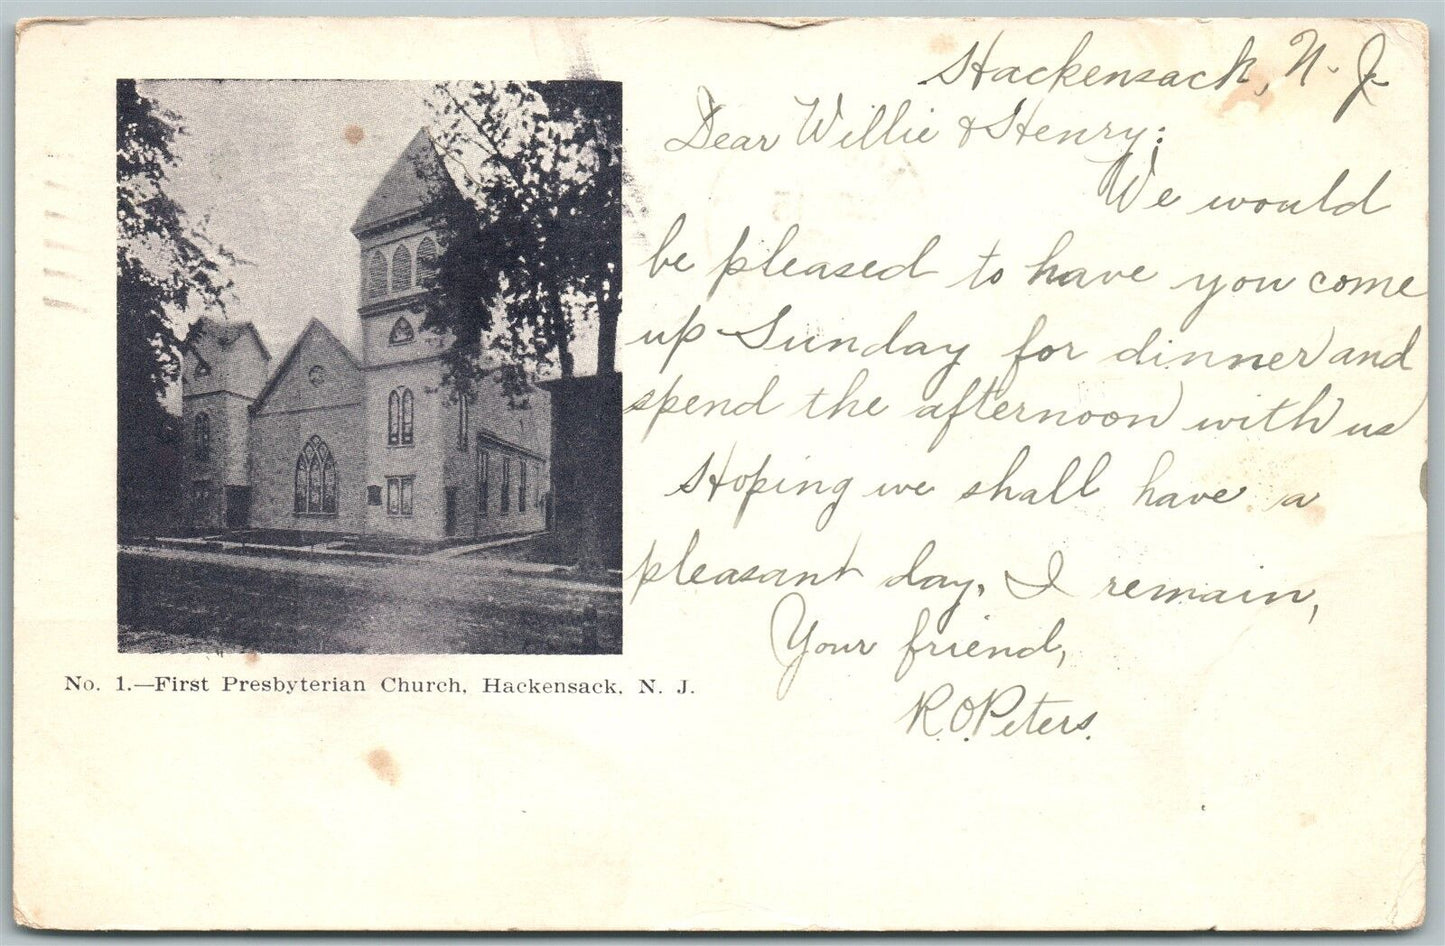 Hackensack, N. J.
Dear Willie & Henry:
We would
be pleased to have you come
up Sunday for dinner and
spend the afternoon with us
Hoping we shall have a
pleasant day, I remain,
Your friend,
R.O.Peters.
No. 1.—First Presbyterian Church, Hackensack, N. J.